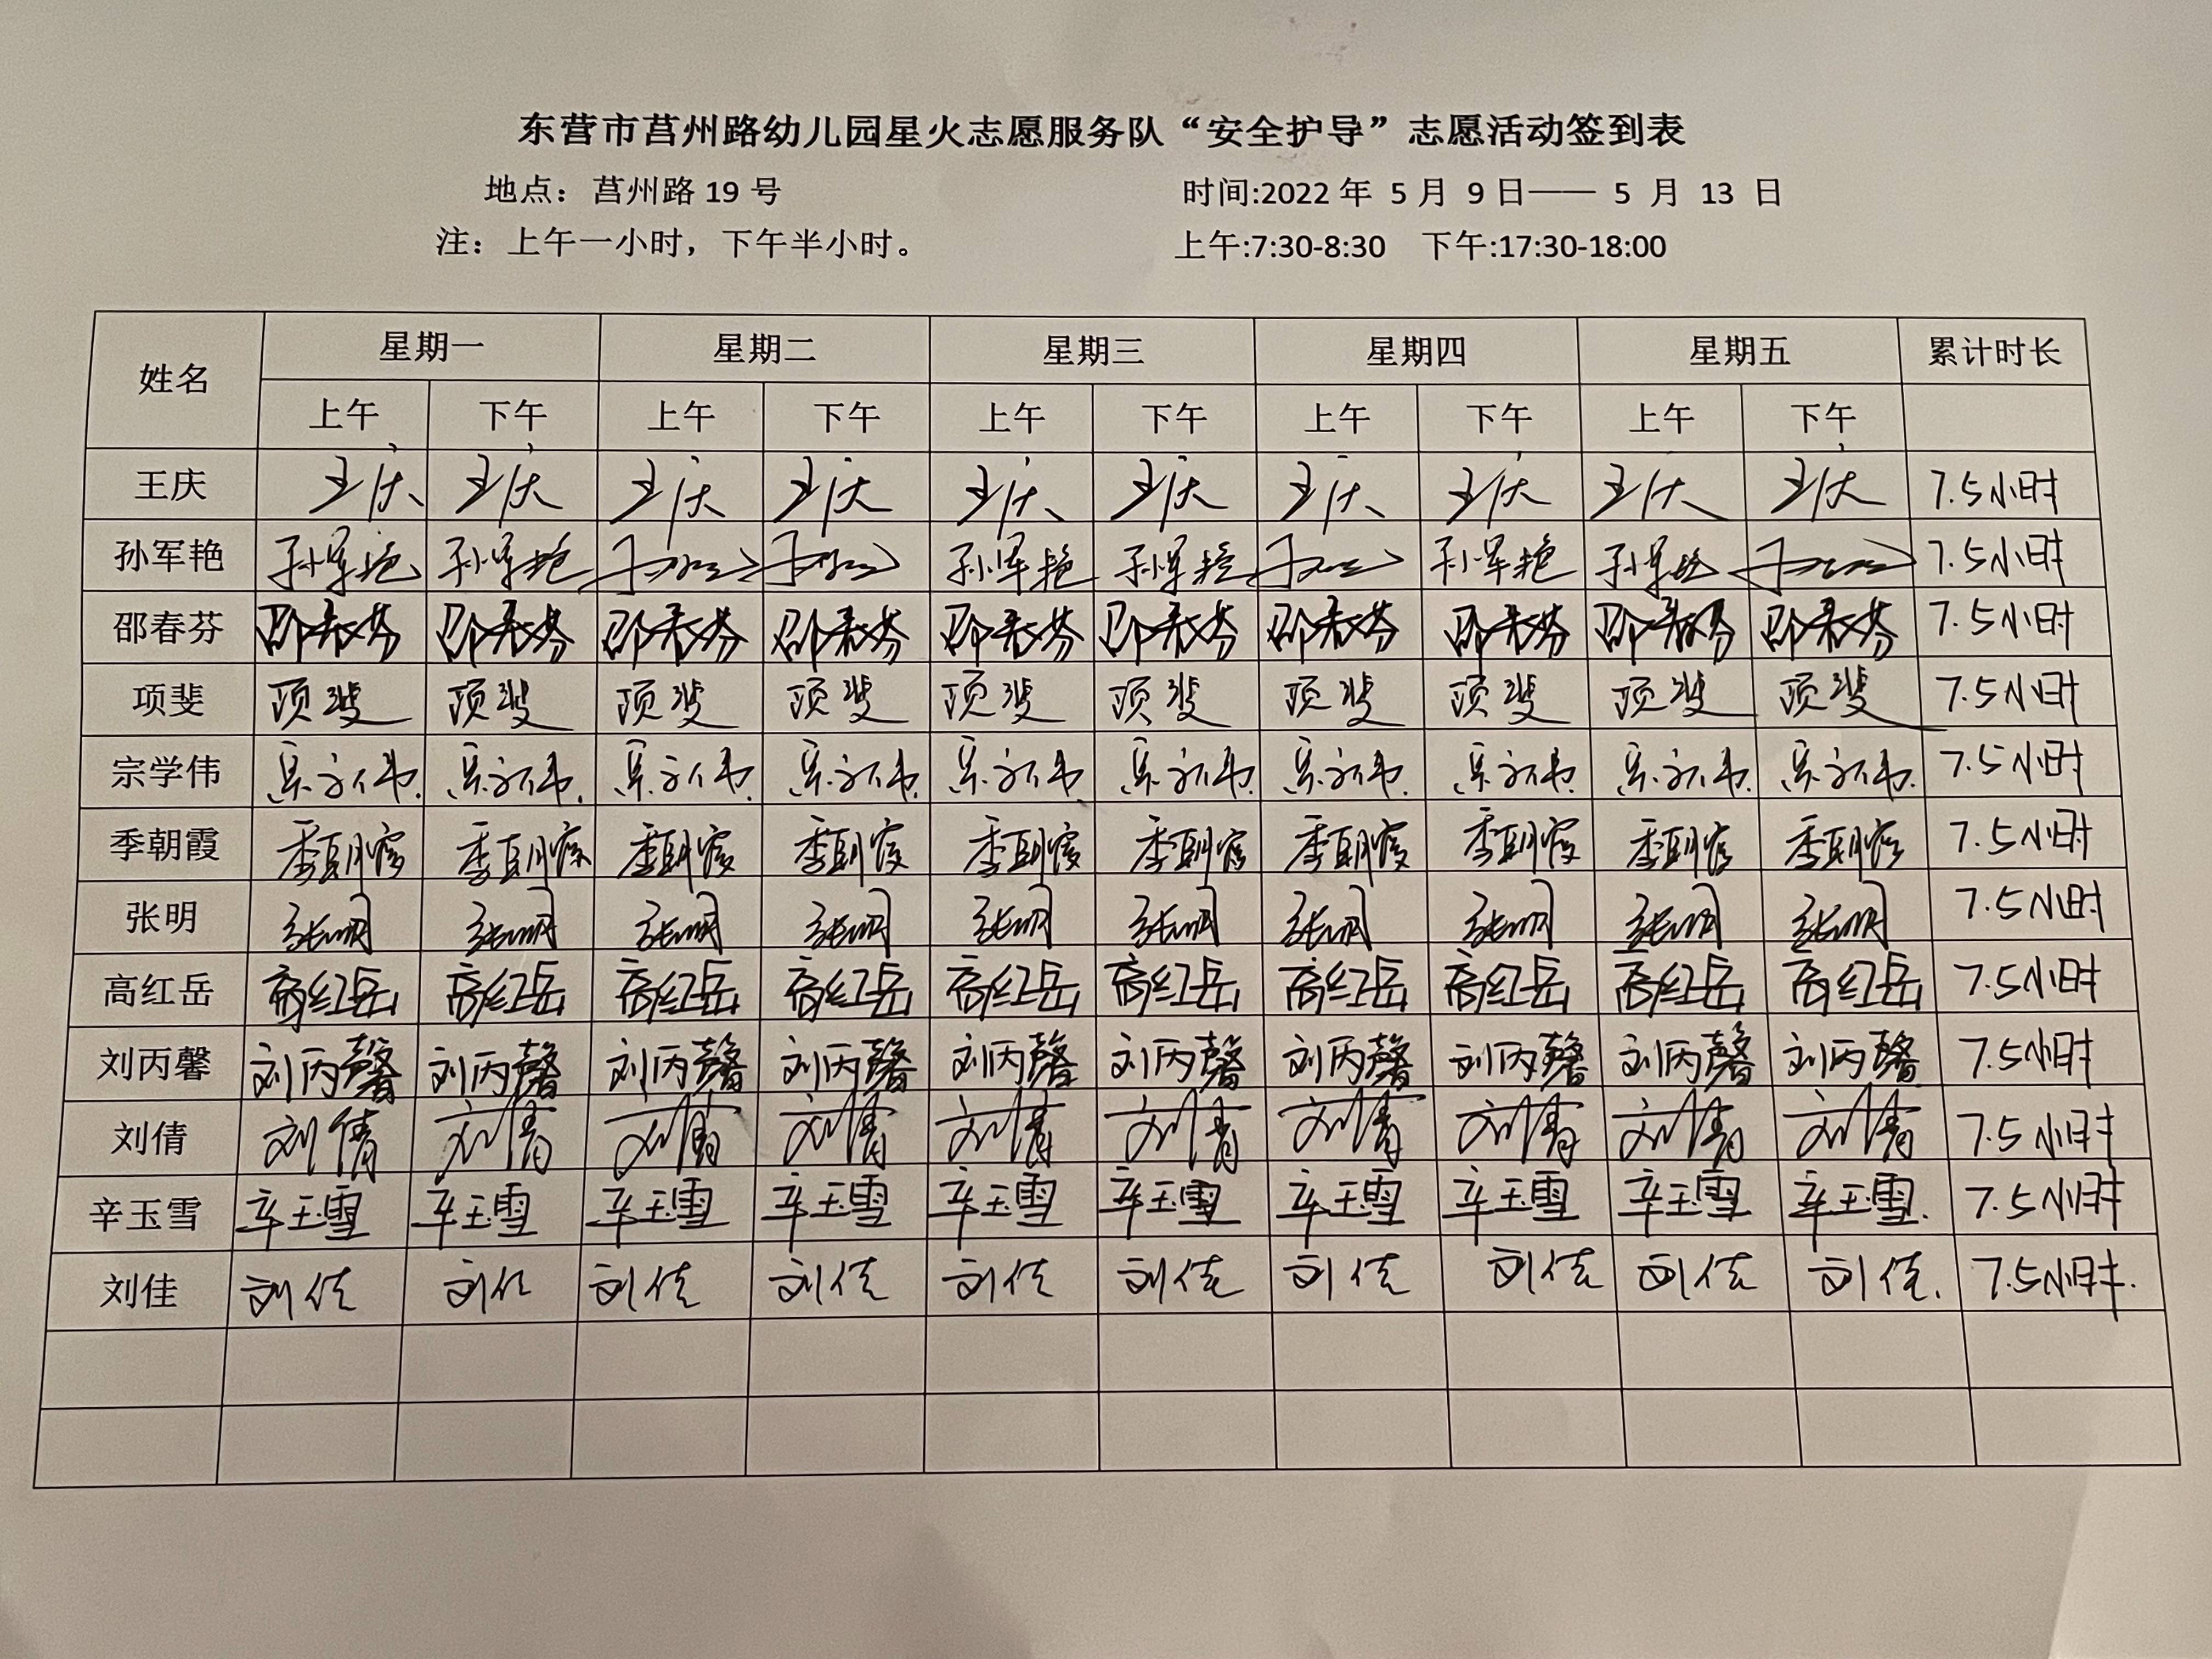 东营市莒州路幼儿园星火志愿服务队“安全护导”志愿活动签到表
地点：莒州路 19 号 时间:2022 年 5 月 9 日—— 5 月 13 日
注：上午一小时，下午半小时。 上午:7:30-8:30 下午:17:30-18:00
姓名 星期一 星期二 星期三 星期四 星期五 累计时长
上午 下午 上午 下午 上午 下午 上午 下午 上午 下午
王庆 王庆 王庆 王庆 王庆 王庆 王庆 王庆 王庆 王庆 王庆 7.5小时
孙军艳 孙军艳 孙军艳 孙军艳 孙军艳 孙军艳 孙军艳 7.5小时
邵春芬 邵春芬 邵春芬 邵春芬 邵春芬 邵春芬 邵春芬 邵春芬 邵春芬 邵春芬 邵春芬 7.5小时
项斐 项斐 项斐 项斐 项斐 项斐 项斐 项斐 项斐 项斐 项斐 7.5小时
宗学伟 宗学伟 宗学伟 宗学伟 宗学伟 宗学伟 宗学伟 宗学伟 宗学伟 宗学伟 宗学伟 7.5小时
季朝霞 季朝霞 季朝霞 季朝霞 季朝霞 季朝霞 季朝霞 季朝霞 季朝霞 季朝霞 季朝霞 7.5小时
张明 张明 张明 张明 张明 张明 张明 张明 张明 张明 张明 7.5小时
高红岳 高红岳 高红岳 高红岳 高红岳 高红岳 高红岳 高红岳 高红岳 高红岳 高红岳 7.5小时
刘丙馨 刘丙馨 刘丙馨 刘丙馨 刘丙馨 刘丙馨 刘丙馨 刘丙馨 刘丙馨 刘丙馨 刘丙馨 7.5小时
刘倩 刘倩 刘倩 刘倩 刘倩 刘倩 刘倩 刘倩 刘倩 刘倩 刘倩 7.5小时
辛玉雪 辛玉雪 辛玉雪 辛玉雪 辛玉雪 辛玉雪 辛玉雪 辛玉雪 辛玉雪 辛玉雪 辛玉雪. 7.5小时
刘佳 刘佳 刘佳 刘佳 刘佳 刘佳 刘佳 刘佳 刘佳 刘佳 刘佳. 7.5小时.